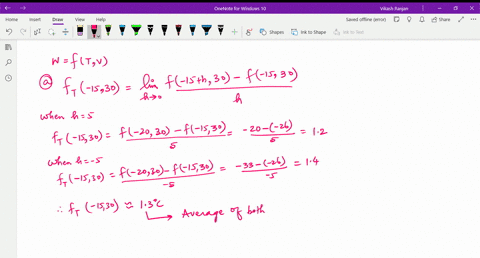 OneNote for Windows 10
Vikash Ranjan
Home Insert Draw View Help
Saved offline (error)
Shapes Ink to Shape Ink to Text
W = f(T,v)
(a) f_T(-15,30) = lim_{h→0} \frac{f(-15+h, 30) - f(-15, 30)}{h}
when h=5
f_T(-15,30) = \frac{f(-20,30) - f(-15,30)}{5} = \frac{-20-(-26)}{5} = 1.2
when h=-5
f_T(-15,30) = \frac{f(-20,30) - f(-15,30)}{-5} = \frac{-33-(-26)}{-5} = 1.4
∴ f_T(-15,30) ≈ 1.3°C
→ Average of both